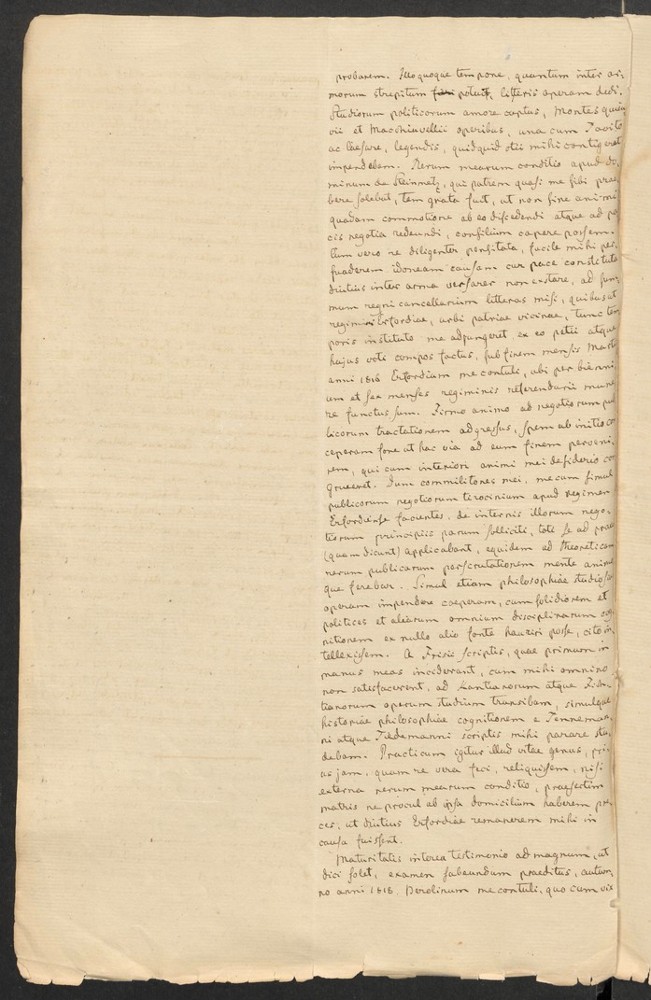 probarem. Illo quoque tempore, quantum inter ar-
morum strepitum potuit, litteris operam dedi.
Studiorum politicorum amore captus, Montesquiu-
vii et Macchiavellii operibus, una cum Tacito
ac Caesare, legendis, quidquid otii mihi contigerat
impendebam. Rerum mearum conditio apud do-
minum de Steinmetz, qui patrem quasi me sibi prae-
bere solebat, tam grata fuit, ut non sine animi
quadam commotione ab eo discedendi atque ad pa-
cis negotia redeundi, consilium capere possem.
Cum vero re diligenter pensitata, facile mihi per-
suaderem idoneam causam cur pace constituta
diutius inter arma versarer non exstare, ad sum-
mum regni cancellarium litteras misi, quibus ut
regimini Erfordiae, urbi patriae vicinae, tunc tem-
poris instituto me adjungeret ex eo petii atque
hujus voti compos factus, sub finem mensis Martii
anni 1816 Erfordiam me contuli, ubi per bienni-
um et sex menses regiminis referendarii mune-
re functus sum. Firmo animo ad negotiorum pu-
blicorum tractationem adgressus, spem ab initio con-
ceperam fore ut hac via ad eum finem perveni-
rem, qui cum interiori animi mei desiderio con-
grueret. Dum commilitones mei, mecum simul
publicorum negotiorum tirocinium apud regimen
Erfordiense facientes, de internis illorum nego-
tiorum principiis parum solliciti, toti se ad praxin
(quam dicunt) applicabant, equidem ad theoreticam
rerum publicarum perscrutationem mente animo-
que ferebar. Simul etiam philosophiae studio
operam impendere coeperam, cum solidiorem et
politices et aliarum omnium disciplinarum cog-
nitionem ex nullo alio fonte hauriri posse, cito in-
tellexissem. A Frisii scriptis, quae primum in
manus meas inciderant, cum mihi omnino
non satisfacerent, ad Kantianorum atque Fich-
tianorum operum studium transibam, simulque
historiae philosophiae cognitionem e Tenneman-
ni atque Tiedemanni scriptis mihi parare stu-
debam. Practicum igitur illud vitae genus, pri-
us jam, quam re vera feci, reliquissem, nisi
externa rerum mearum conditio, praesertim
matris ne procul ab ipsa domicilium haberem pre-
ces, ut diutius Erfordiae remanerem mihi in
causa fuissent.
Maturitatis interea testimonio ad magnum, ut
dici solet, examen subeundum praeditus, autum-
no anni 1818 Berolinum me contuli, quo cum vix